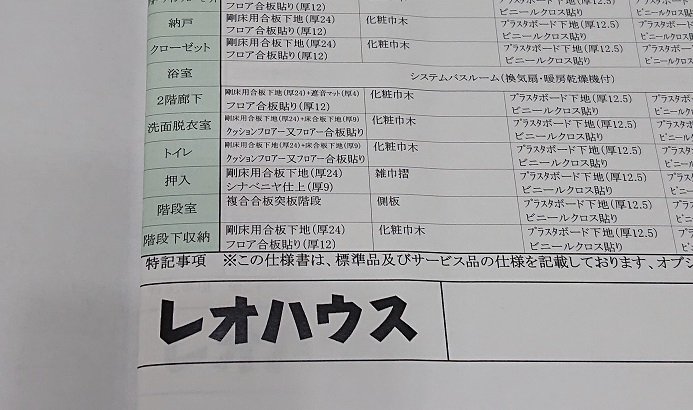 フロア合板貼り(厚12)
納戸 剛床用合板下地(厚24) 化粧巾木 プラスタボード下地(厚12.5)
フロア合板貼り(厚12) ビニールクロス貼り
クローゼット 剛床用合板下地(厚24) 化粧巾木 プラスタボード下地(厚12.5)
フロア合板貼り(厚12) ビニールクロス貼り
浴室 システムバスルーム(換気扇・暖房乾燥機付)
2階廊下 剛床用合板下地(厚24)+遮音マット(厚4) 化粧巾木 プラスタボード下地(厚12.5)
フロア合板貼り(厚12) ビニールクロス貼り
洗面脱衣室 剛床用合板下地(厚24)+床合板下地(厚9) 化粧巾木 プラスタボード下地(厚12.5)
クッションフロアー又フロアー合板貼り ビニールクロス貼り
トイレ 剛床用合板下地(厚24)+床合板下地(厚9) 化粧巾木 プラスタボード下地(厚12.5)
クッションフロアー又フロアー合板貼り ビニールクロス貼り
押入 剛床用合板下地(厚24) 雑巾摺 プラスタボード下地(厚12.5)
シナベニヤ仕上(厚9) ビニールクロス貼り
階段室 複合合板突板階段 側板 プラスタボード下地(厚12.5)
ビニールクロス貼り
階段下収納 剛床用合板下地(厚24) 化粧巾木 プラスタボード下地(厚12.5)
フロア合板貼り(厚12) ビニールクロス貼り
特記事項 ※この仕様書は、標準品及びサービス品の仕様を記載しております、オプシ
レオハウス